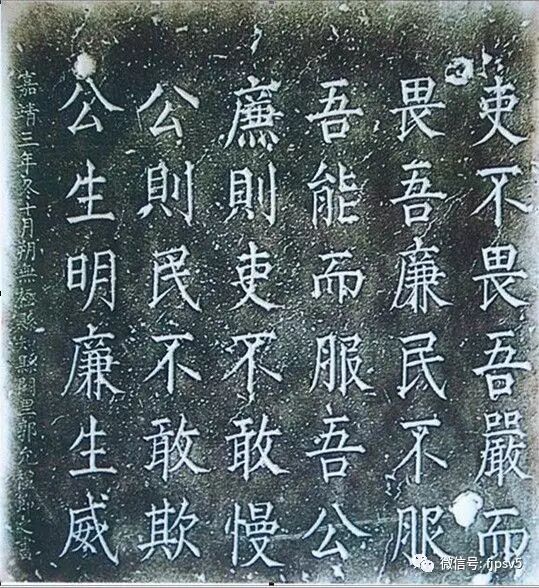 吏不畏吾嚴而
畏吾廉民不服
吾能而服吾公
廉則吏不敢慢
公則民不敢欺
公生明廉生威
嘉靖三年冬十月朔無極縣縣關里郭允
微信号: fjpsv5